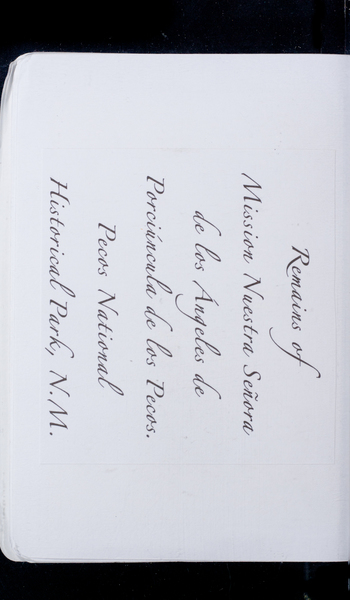 Remains of
Mission Nuestra Señora
de los Ángeles de
Porciúncula de los Pecos.
Pecos National
Historical Park, N.M.